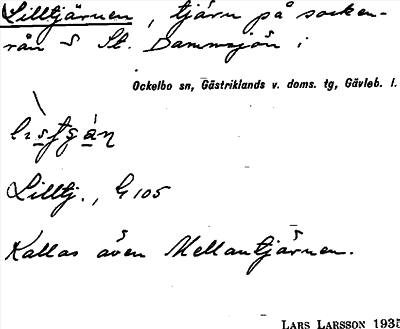 Lilltjärnen, tjärn på socken-
rån S St. Dammsjön i
Ockelbo sn, Gästriklands v. doms. tg, Gävleb. l.
Lilltj., G 105
Kallas även Mellantjärnen.
LARS LARSSON 1935